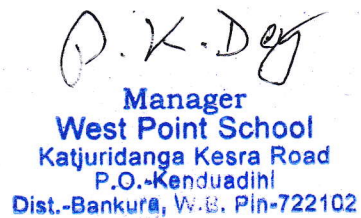 P. K. Dey
Manager
West Point School
Katjuridanga Kesra Road
P.O.-Kenduadihi
Dist.-Bankura, W.B. Pin-722102